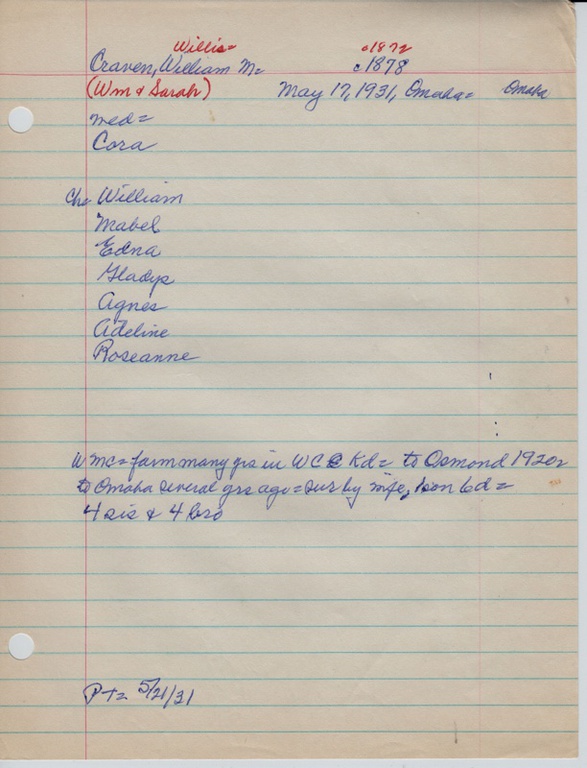 Willis= c1872
Craven, William M= c1878
(Wm & Sarah) May 17, 1931, Omaha= Omaha
med=
Cora
Ch= William
Mabel
Edna
Gladys
Agnes
Adeline
Roseanne
WMC= farm many yrs in WC Kd= to Osmond 1920=
to Omaha several yrs ago= sur by wife, 1 son 6 d=
4 sis & 4 bro
PT= 5/21/31